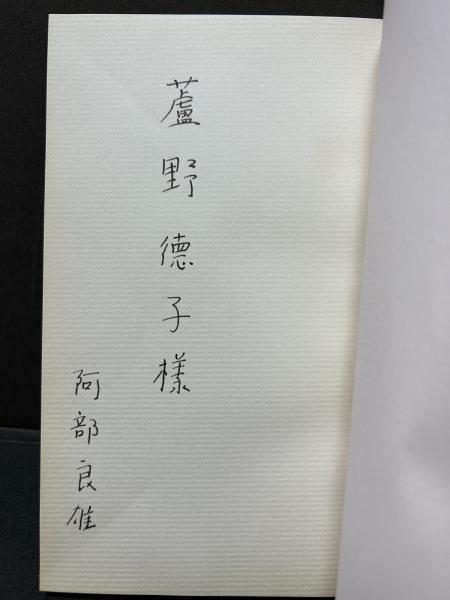 蘆野德子様
阿部良雄